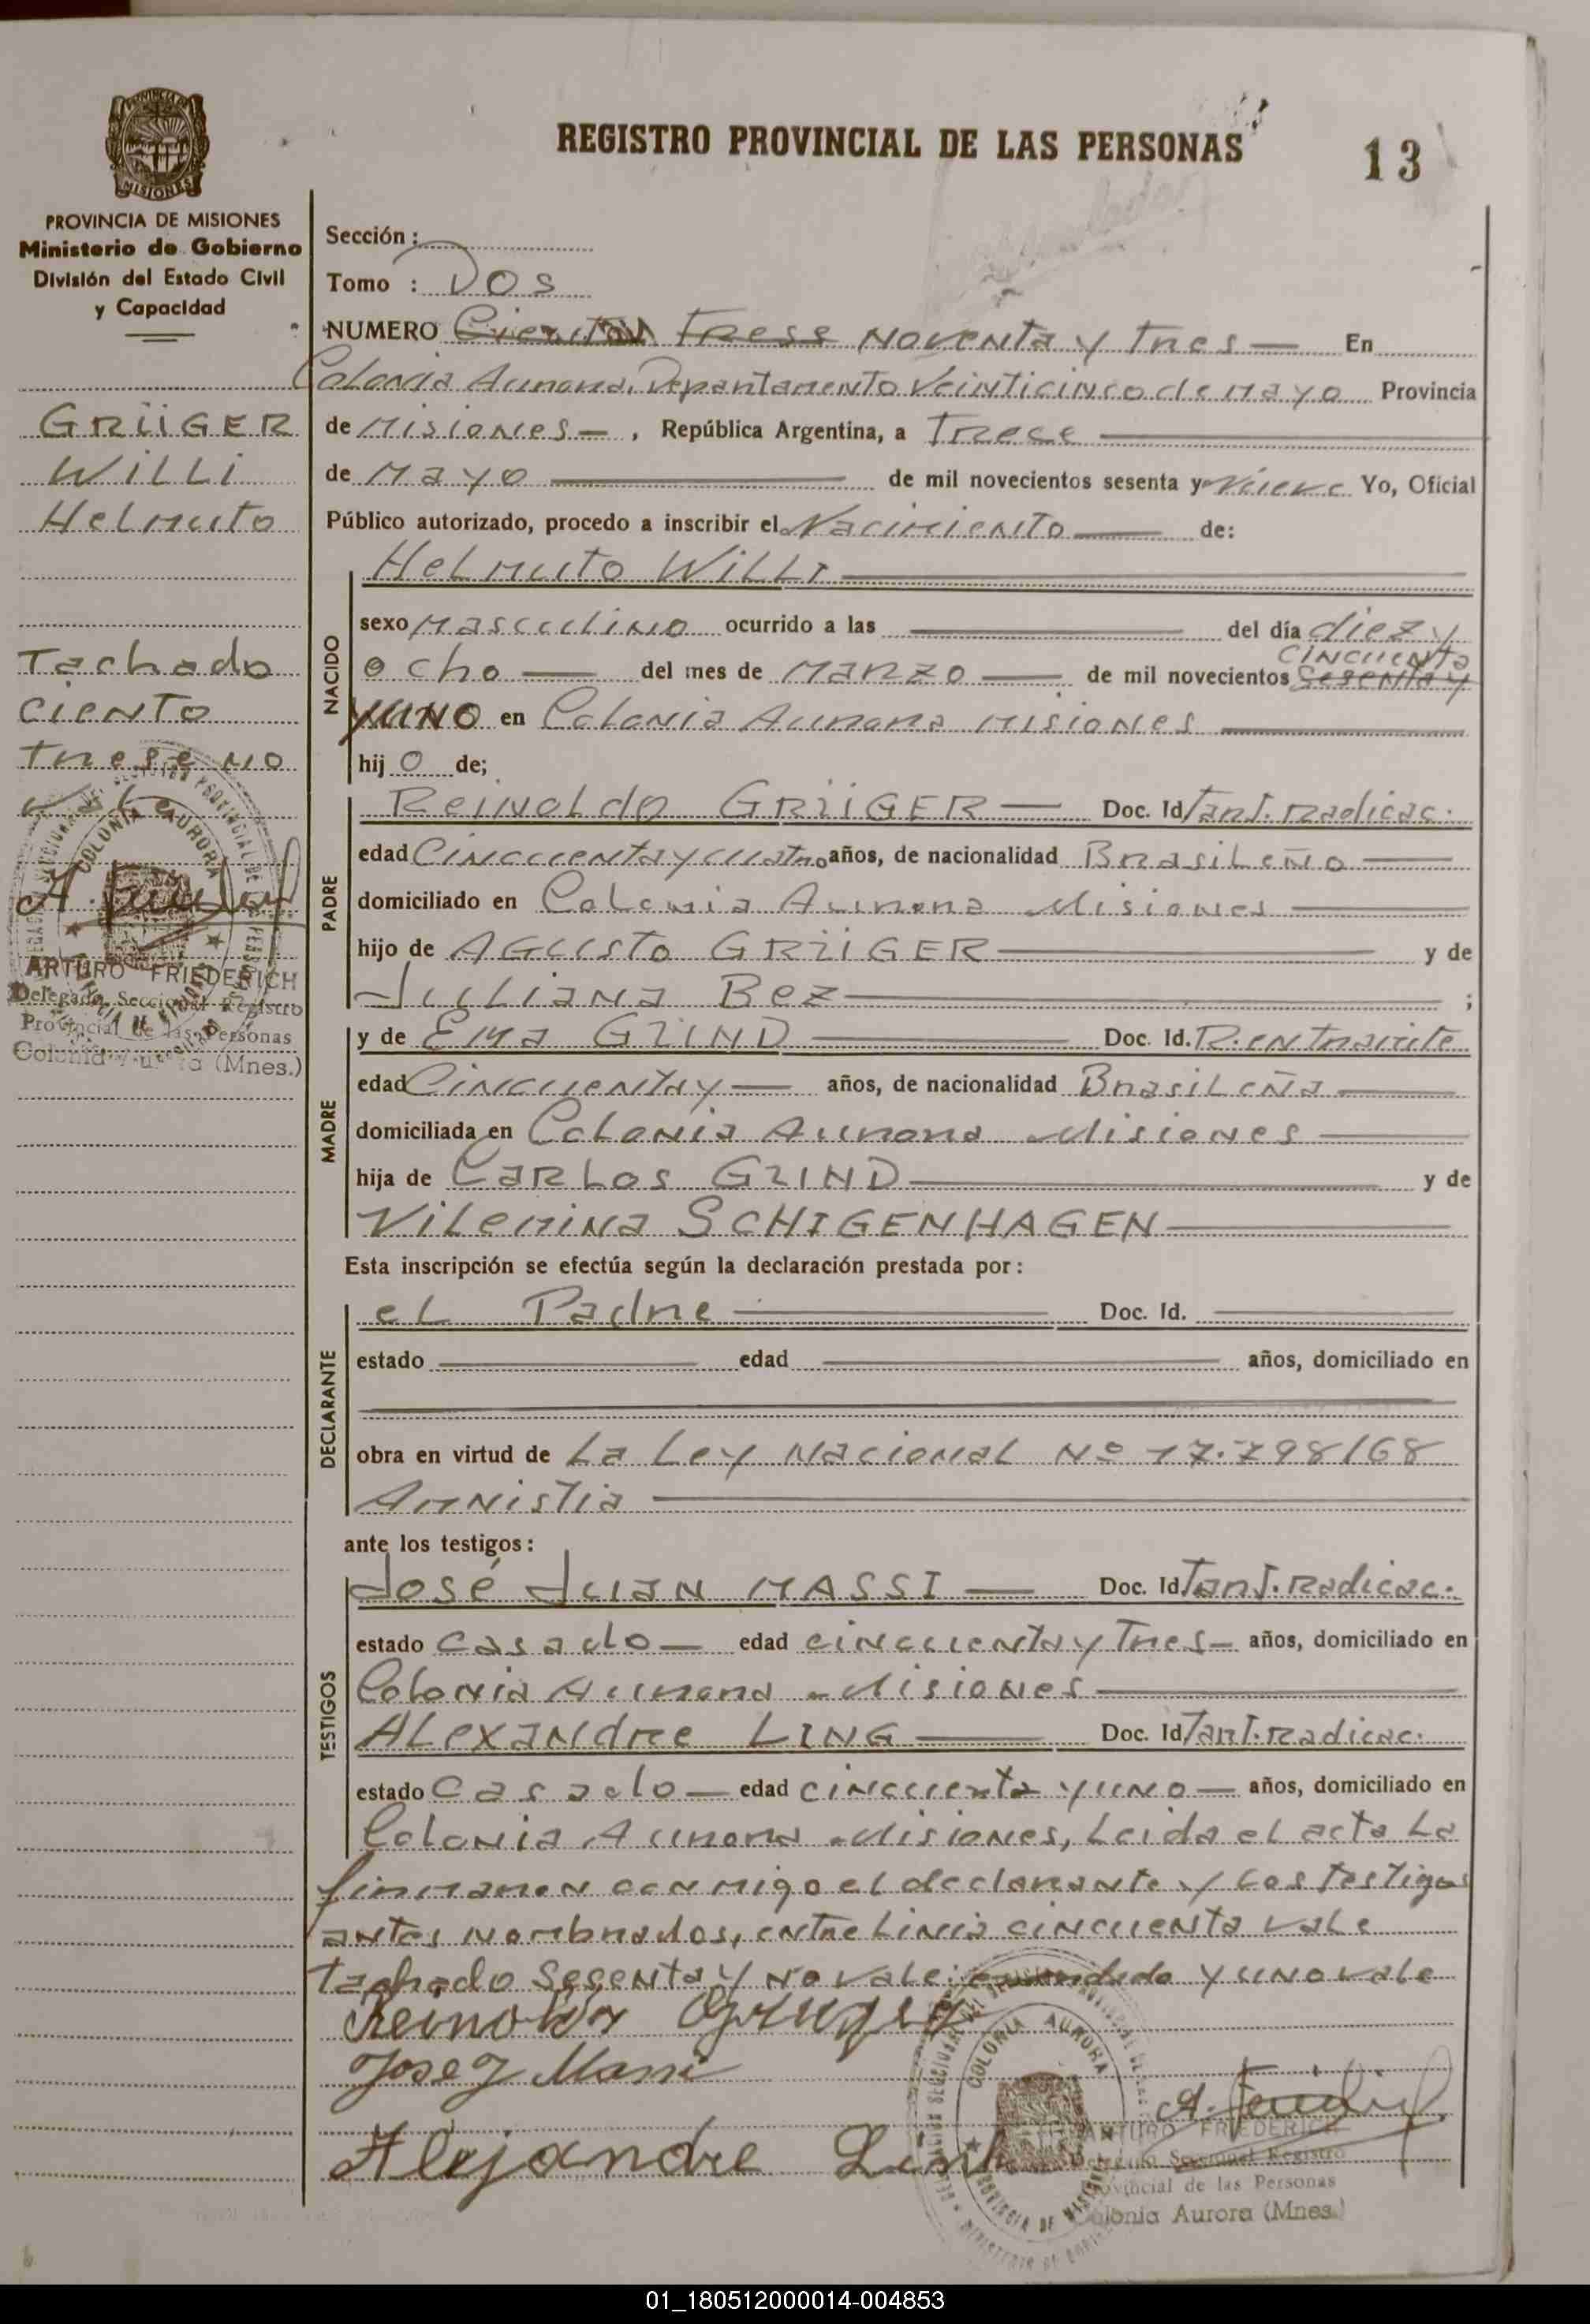 REGISTRO PROVINCIAL DE LAS PERSONAS
13
MISIONES
PROVINCIA DE MISIONES
Ministerio de Gobierno
División del Estado Civil
y Capacidad
GRÜGER
WILLI
Helmuto
Tachado
ciento
trese no
vale
COLONIA AURORA
ARTURO FRIEDERICH
Delegado Seccional Registro
Provincial de las Personas
Colonia Aurora (Mnes.)
Sección :
Tomo : Dos
NUMERO Ciento Trese Noventa y tres — En
Colonia Aurora, Departamento Veinticinco de Mayo Provincia
de Misiones — , República Argentina, a Trece
de Mayo de mil novecientos sesenta y Nueve Yo, Oficial
Público autorizado, procedo a inscribir el Nacimiento de:
NACIDO
Helmuto Willi
sexo Masculino ocurrido a las del día diez y
ocho — del mes de Marzo — de mil novecientos Sesenta y
cincuenta
y uno en Colonia Aurora Misiones
hij o de;
PADRE
Reinoldo GRÜGER — Doc. Id Tarj. Radicac.
edad Cincuenta y cuatro años, de nacionalidad Brasileño
domiciliado en Colonia Aurora Misiones
hijo de Agusto GRÜGER y de
Juliana Bez ;
MADRE
y de Ema GZIND Doc. Id. R. en tramite
edad Cincuenta y — años, de nacionalidad Brasileña
domiciliada en Colonia Aurora Misiones
hija de Carlos GZIND y de
Vilemina SCHIGENHAGEN
Esta inscripción se efectúa según la declaración prestada por :
DECLARANTE
el Padre Doc. Id.
estado edad años, domiciliado en
obra en virtud de La Ley Nacional Nº 17.798/68
Amnistia
ante los testigos :
TESTIGOS
José Juan MASSI — Doc. Id Tarj. Radicac.
estado casado — edad cincuenta y tres — años, domiciliado en
Colonia Aurora Misiones
Alexandre LING Doc. Id Tarj. Radicac.
estado Casado — edad cincuenta y uno — años, domiciliado en
Colonia Aurora Misiones, Leida el acta La
firmaron conmigo el declarante y los testigos
antes nombrados, entre Linia cincuenta vale
tachado Sesenta y no vale: enmendado y uno vale
Reinoldo Gruger
Jose J Massi
Alejandre Link
COLONIA AURORA
PROVINCIA DE MISIONES
ARTURO FRIEDERICH
Delegado Seccional Registro
Provincial de las Personas
Colonia Aurora (Mnes.)
01_180512000014-004853